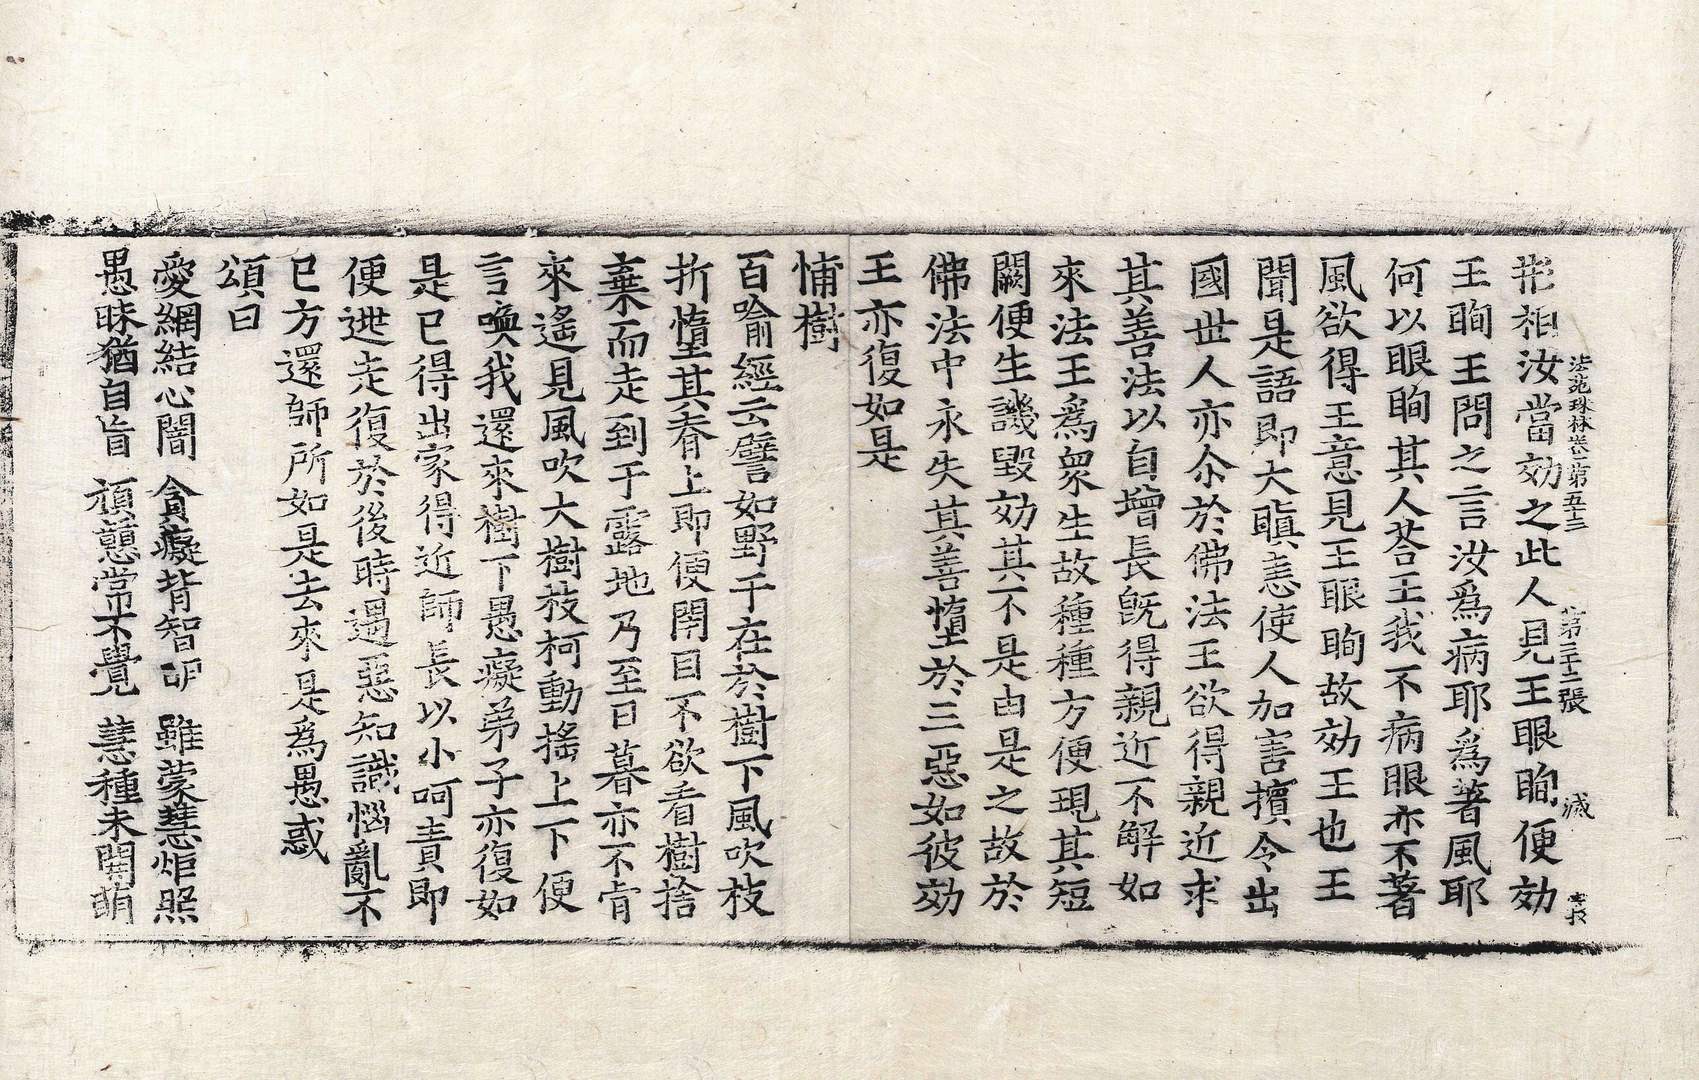 法苑珠林卷第五十三　第三十二張　滅
形相汝當効之此人見王眼眴便効
王眴王問之言汝爲病耶爲著風耶
何以眼眴其人荅王我不病眼亦不著
風欲得王意見王眼眴故効王也王
聞是語即大瞋恚使人加害擯令出
國世人亦尒於佛法王欲得親近求
其善法以自增長旣得親近不解如
來法王爲衆生故種種方便現其短
闕便生譏毀効其不是由是之故於
佛法中永失其善墮於三惡如彼効
王亦復如是
怖樹
百喻經云譬如野干在於樹下風吹枝
折墮其脊上即便閉目不欲看樹捨
棄而走到于露地乃至日暮亦不肯
來遙見風吹大樹枝柯動搖上下便
言喚我還來樹下愚癡弟子亦復如
是已得出家得近師長以小呵責即
便逃走復於後時遇惡知識惱亂不
已方還師所如是去來是爲愚惑
頌曰
愛網結心闇　貪癡背智明　雖蒙慧炬照
愚昧猶自盲　頑戇常不覺　慧種未開萌